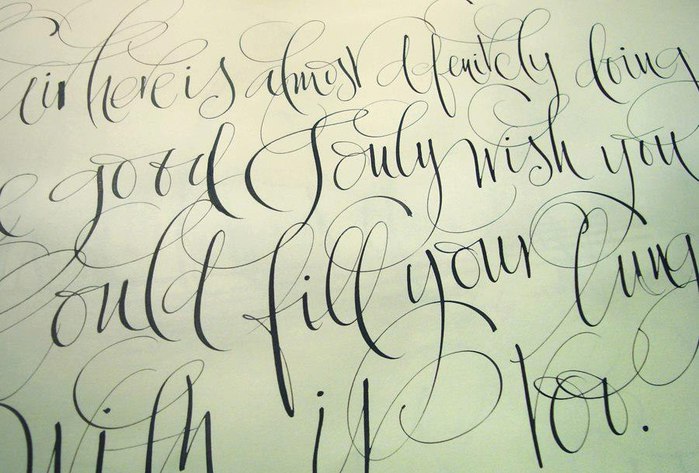 air here is almost definitely doing
e good I only wish you
ould fill your lung
with it too.